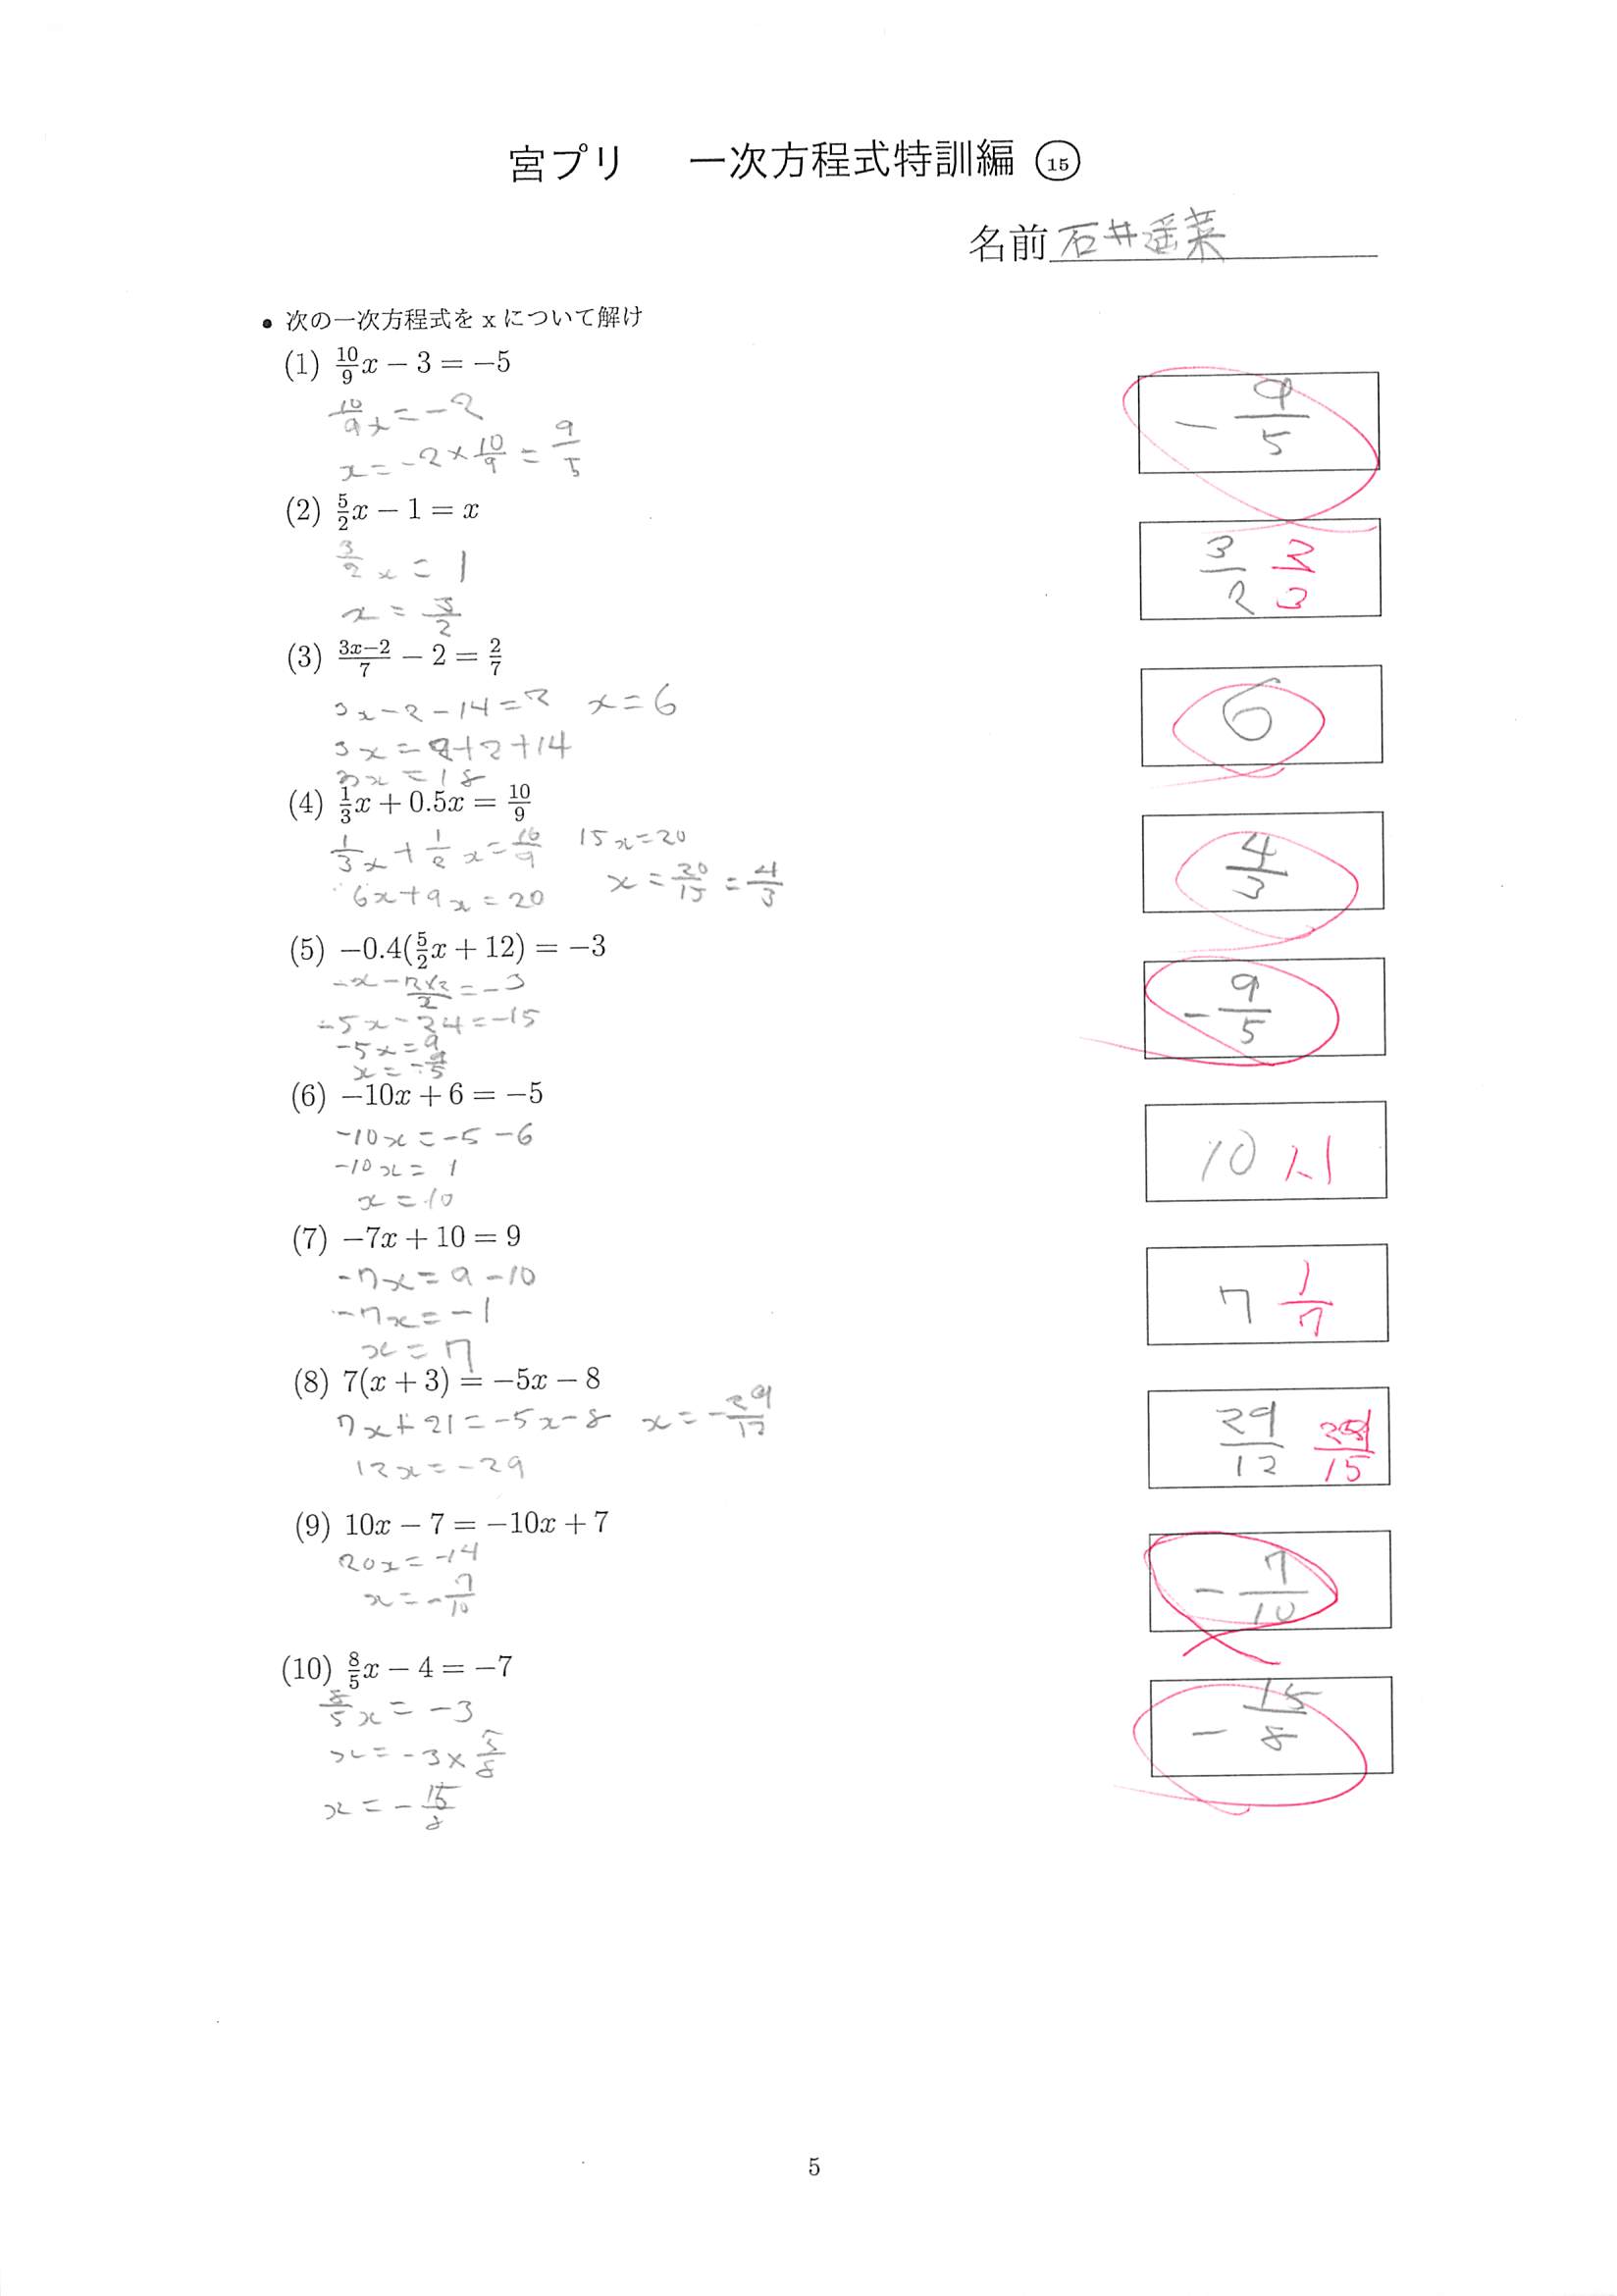 宮プリ 一次方程式特訓編 ⑮
名前 石井遥菜
• 次の一次方程式を x について解け
(1) 10/9 x − 3 = −5
10/9 x = −2
x = −2 × 10/9 = 9/5
− 9/5
(2) 5/2 x − 1 = x
3/2 x = 1
x = 3/2
3/2 2/3
(3) (3x−2)/7 − 2 = 2/7
3x − 2 − 14 = 2 x = 6
3x = 2 + 2 + 14
3x = 18
6
(4) 1/3 x + 0.5x = 10/9
1/3 x + 1/2 x = 10/9 15x = 20
6x + 9x = 20 x = 20/15 = 4/3
4/3
(5) −0.4(5/2 x + 12) = −3
−5x − 24 = −15
−5x = 9
x = − 9/5
− 9/5
(6) −10x + 6 = −5
−10x = −5 − 6
−10x = 1
x = 10
10 1.1
(7) −7x + 10 = 9
−7x = 9 − 10
−7x = −1
x = 7
7 1/7
(8) 7(x + 3) = −5x − 8
7x + 21 = −5x − 8 x = − 29/12
12x = −29
29/12 /15
(9) 10x − 7 = −10x + 7
20x = −14
x = − 7/10
− 7/10
(10) 8/5 x − 4 = −7
8/5 x = −3
x = −3 × 5/8
x = − 15/8
− 15/8
5